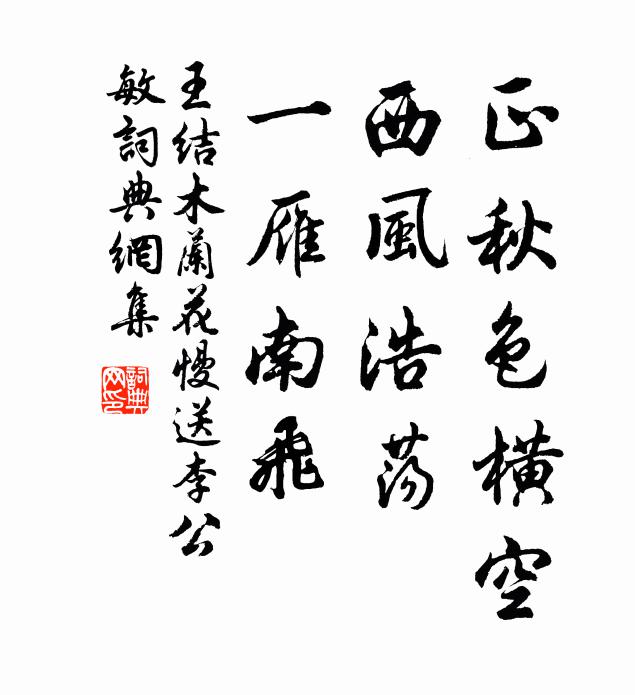 正秋色橫空
西風浩蕩
一雁南飛
王結木蘭花慢送李公
敏詞典網集
詞典
网印